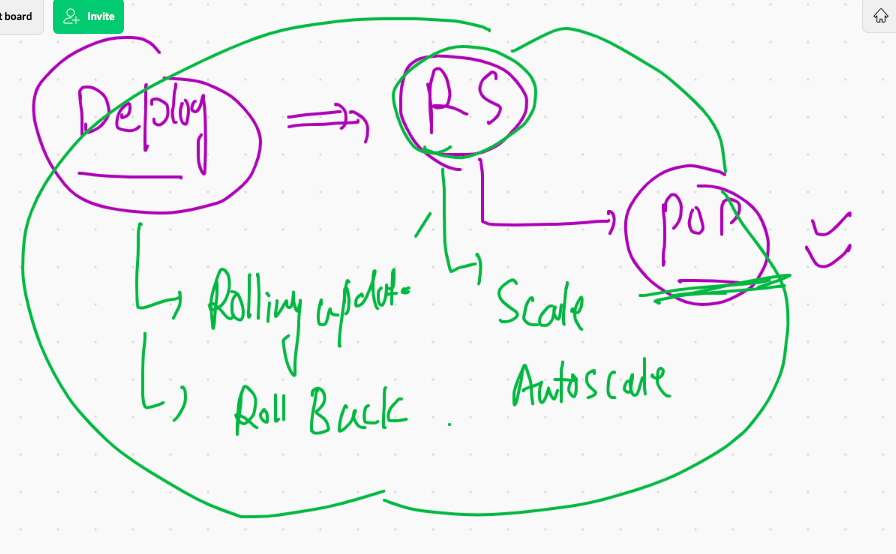 t board
Invite
Deploy
RS
POD
Rolling update
Scale
Roll Back.
Autoscale